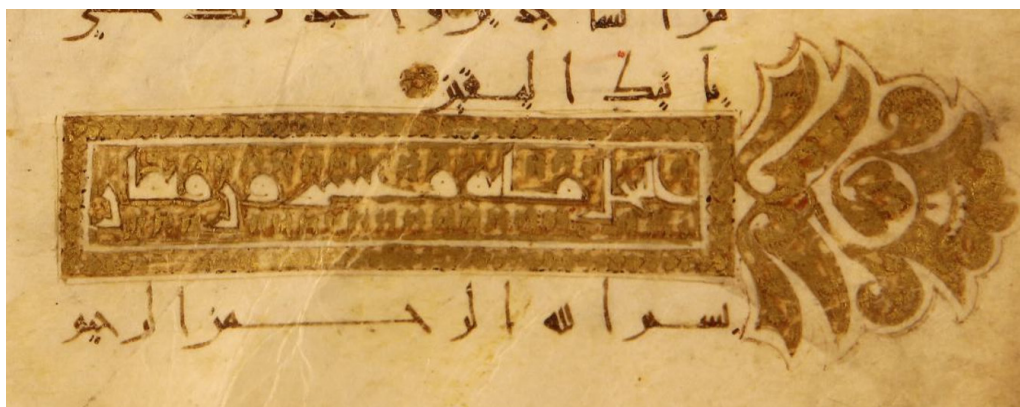 من الساجدين واعبد ربك حتى
يأتيك اليقين
النحل مايه وعشرون وثمان
بسم الله الرحمن الرحيم